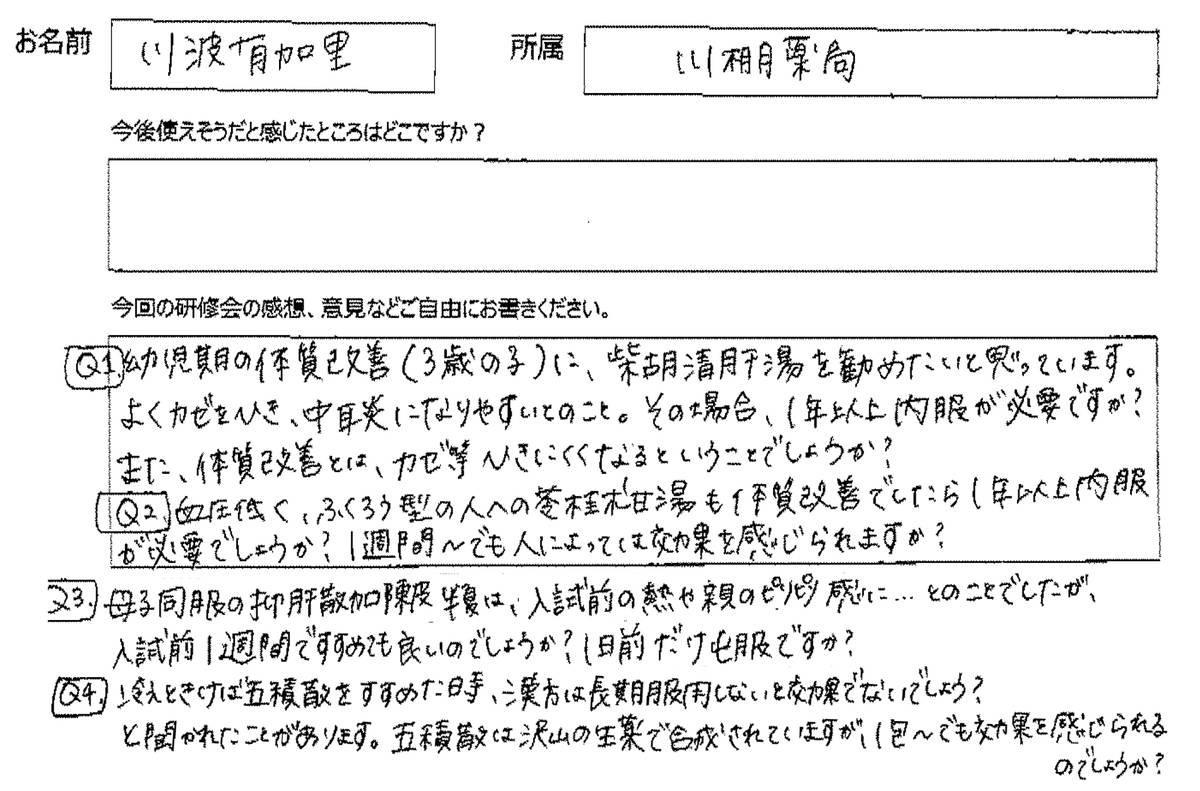 お名前 川波有加里 所属 川棚薬局
今後使えそうだと感じたところはどこですか？
今回の研修会の感想、意見などご自由にお書きください。
Q1. 幼児期の体質改善（3歳の子）に、柴胡清肝湯を勧めたいと思っています。
よくカゼをひき、中耳炎になりやすいとのこと。その場合、1年以上内服が必要ですか？
また、体質改善とは、カゼ等ひきにくくなるということでしょうか？
Q2. 血圧低く、ふくろう型の人への苓桂朮甘湯も体質改善でしたら1年以上内服
が必要でしょうか？1週間～でも人によっては効果を感じられますか？
Q3. 母子同服の抑肝散加陳皮半夏は、入試前の熱や親のピリピリ感に…とのことでしたが、
入試前1週間ですすめても良いのでしょうか？1日前だけ屯服ですか？
Q4. 冷えときけば五積散をすすめた時、漢方は長期服用しないと効果でないでしょう？
と聞かれたことがあります。五積散は沢山の生薬で合成されていますが、1包～でも効果を感じられる
のでしょうか？